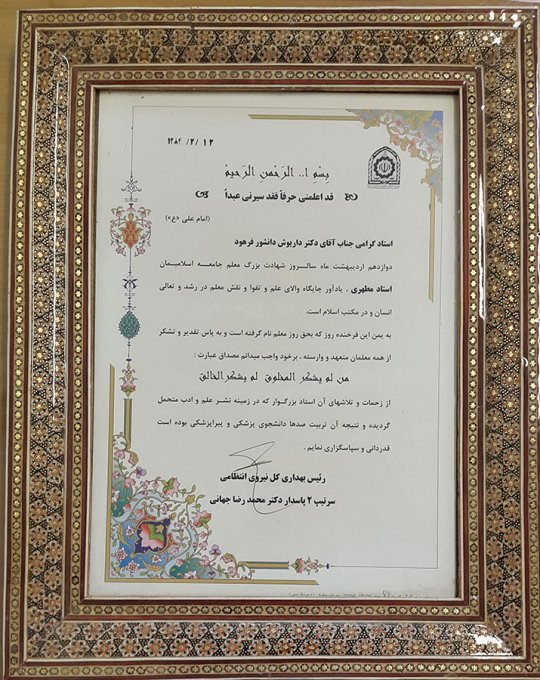 ۱۳۸۴/۲/۱۲
بِسْمِ ا.. الرَّحْمنِ الرَّحیمْ
قد اعلمنی حرفاً فقد سیرنی عبداً
(امام علی «ع»)
استاد گرامی جناب آقای دکتر داریوش دانشور فرهود
دوازدهم اردیبهشت ماه سالروز شهادت بزرگ معلم جامعه اسلامیمان
استاد مطهری ، یادآور جایگاه والای علم و تقوا و نقش معلم در رشد و تعالی
انسان و در مکتب اسلام است.
به یمن این فرخنده روز که بحق روز معلم نام گرفته است و به پاس تقدیر و تشکر
از همه معلمان متعهد و وارسته ، برخود واجب میدانم مصداق عبارت :
من لم یشکر المخلوق لم یشکر الخالق
از زحمات و تلاشهای آن استاد بزرگوار که در زمینه نشر علم و ادب متحمل
گردیده و نتیجه آن تربیت صدها دانشجوی پزشکی و پیراپزشکی بوده است
قدردانی و سپاسگزاری نمایم .
رئیس بهداری کل نیروی انتظامی
سرتیپ ۲ پاسدار دکتر محمد رضا جهانی